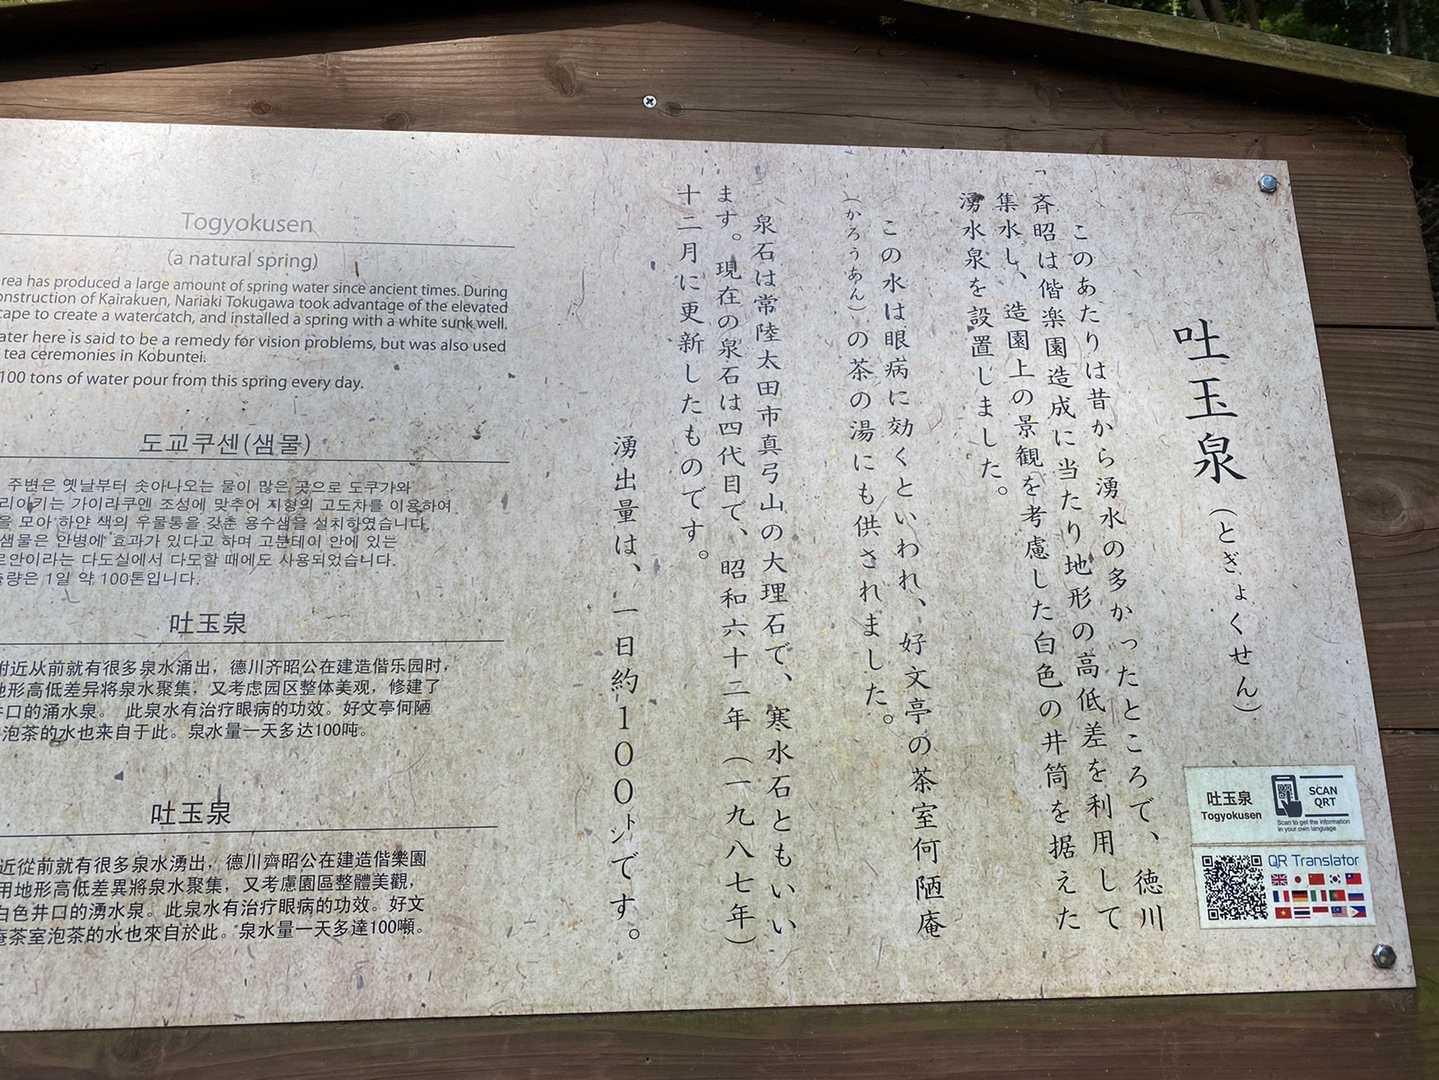 吐玉泉（とぎょくせん）
このあたりは昔から湧水の多かったところで、徳川
斉昭は偕楽園造成に当たり地形の高低差を利用して
集水し、造園上の景観を考慮した白色の井筒を据えた
湧水泉を設置しました。
この水は眼病に効くといわれ、好文亭の茶室何陋庵
（かろうあん）の茶の湯にも供されました。
泉石は常陸太田市真弓山の大理石で、寒水石ともいい
ます。現在の泉石は四代目で、昭和六十二年（一九八七年）
十二月に更新したものです。
湧出量は、一日約100㌧です。
Togyokusen
(a natural spring)
rea has produced a large amount of spring water since ancient times. During
onstruction of Kairakuen, Nariaki Tokugawa took advantage of the elevated
cape to create a watercatch, and installed a spring with a white sunk well.
ater here is said to be a remedy for vision problems, but was also used
tea ceremonies in Kobuntei.
100 tons of water pour from this spring every day.
도교쿠센(샘물)
주변은 옛날부터 솟아나오는 물이 많은 곳으로 도쿠가와
리아키는 가이라쿠엔 조성에 맞추어 지형의 고도차를 이용하여
을 모아 하얀 색의 우물통을 갖춘 용수샘을 설치하였습니다.
샘물은 안병에 효과가 있다고 하며 고분테이 안에 있는
로안이라는 다도실에서 다도할 때에도 사용되었습니다.
출량은 1일 약 100톤입니다.
吐玉泉
附近从前就有很多泉水涌出，德川齐昭公在建造偕乐园时，
地形高低差异将泉水聚集，又考虑园区整体美观，修建了
井口的涌水泉。 此泉水有治疗眼病的功效。好文亭何陋
泡茶的水也来自于此。泉水量一天多达100吨。
吐玉泉
近從前就有很多泉水湧出，德川齊昭公在建造偕樂園
用地形高低差異將泉水聚集，又考慮園區整體美觀，
白色井口的湧水泉。此泉水有治疗眼病的功效。好文
庵茶室泡茶的水也來自於此。泉水量一天多達100噸。
吐玉泉
Togyokusen
SCAN
QRT
Scan to get the information
in your own language
QR Translator